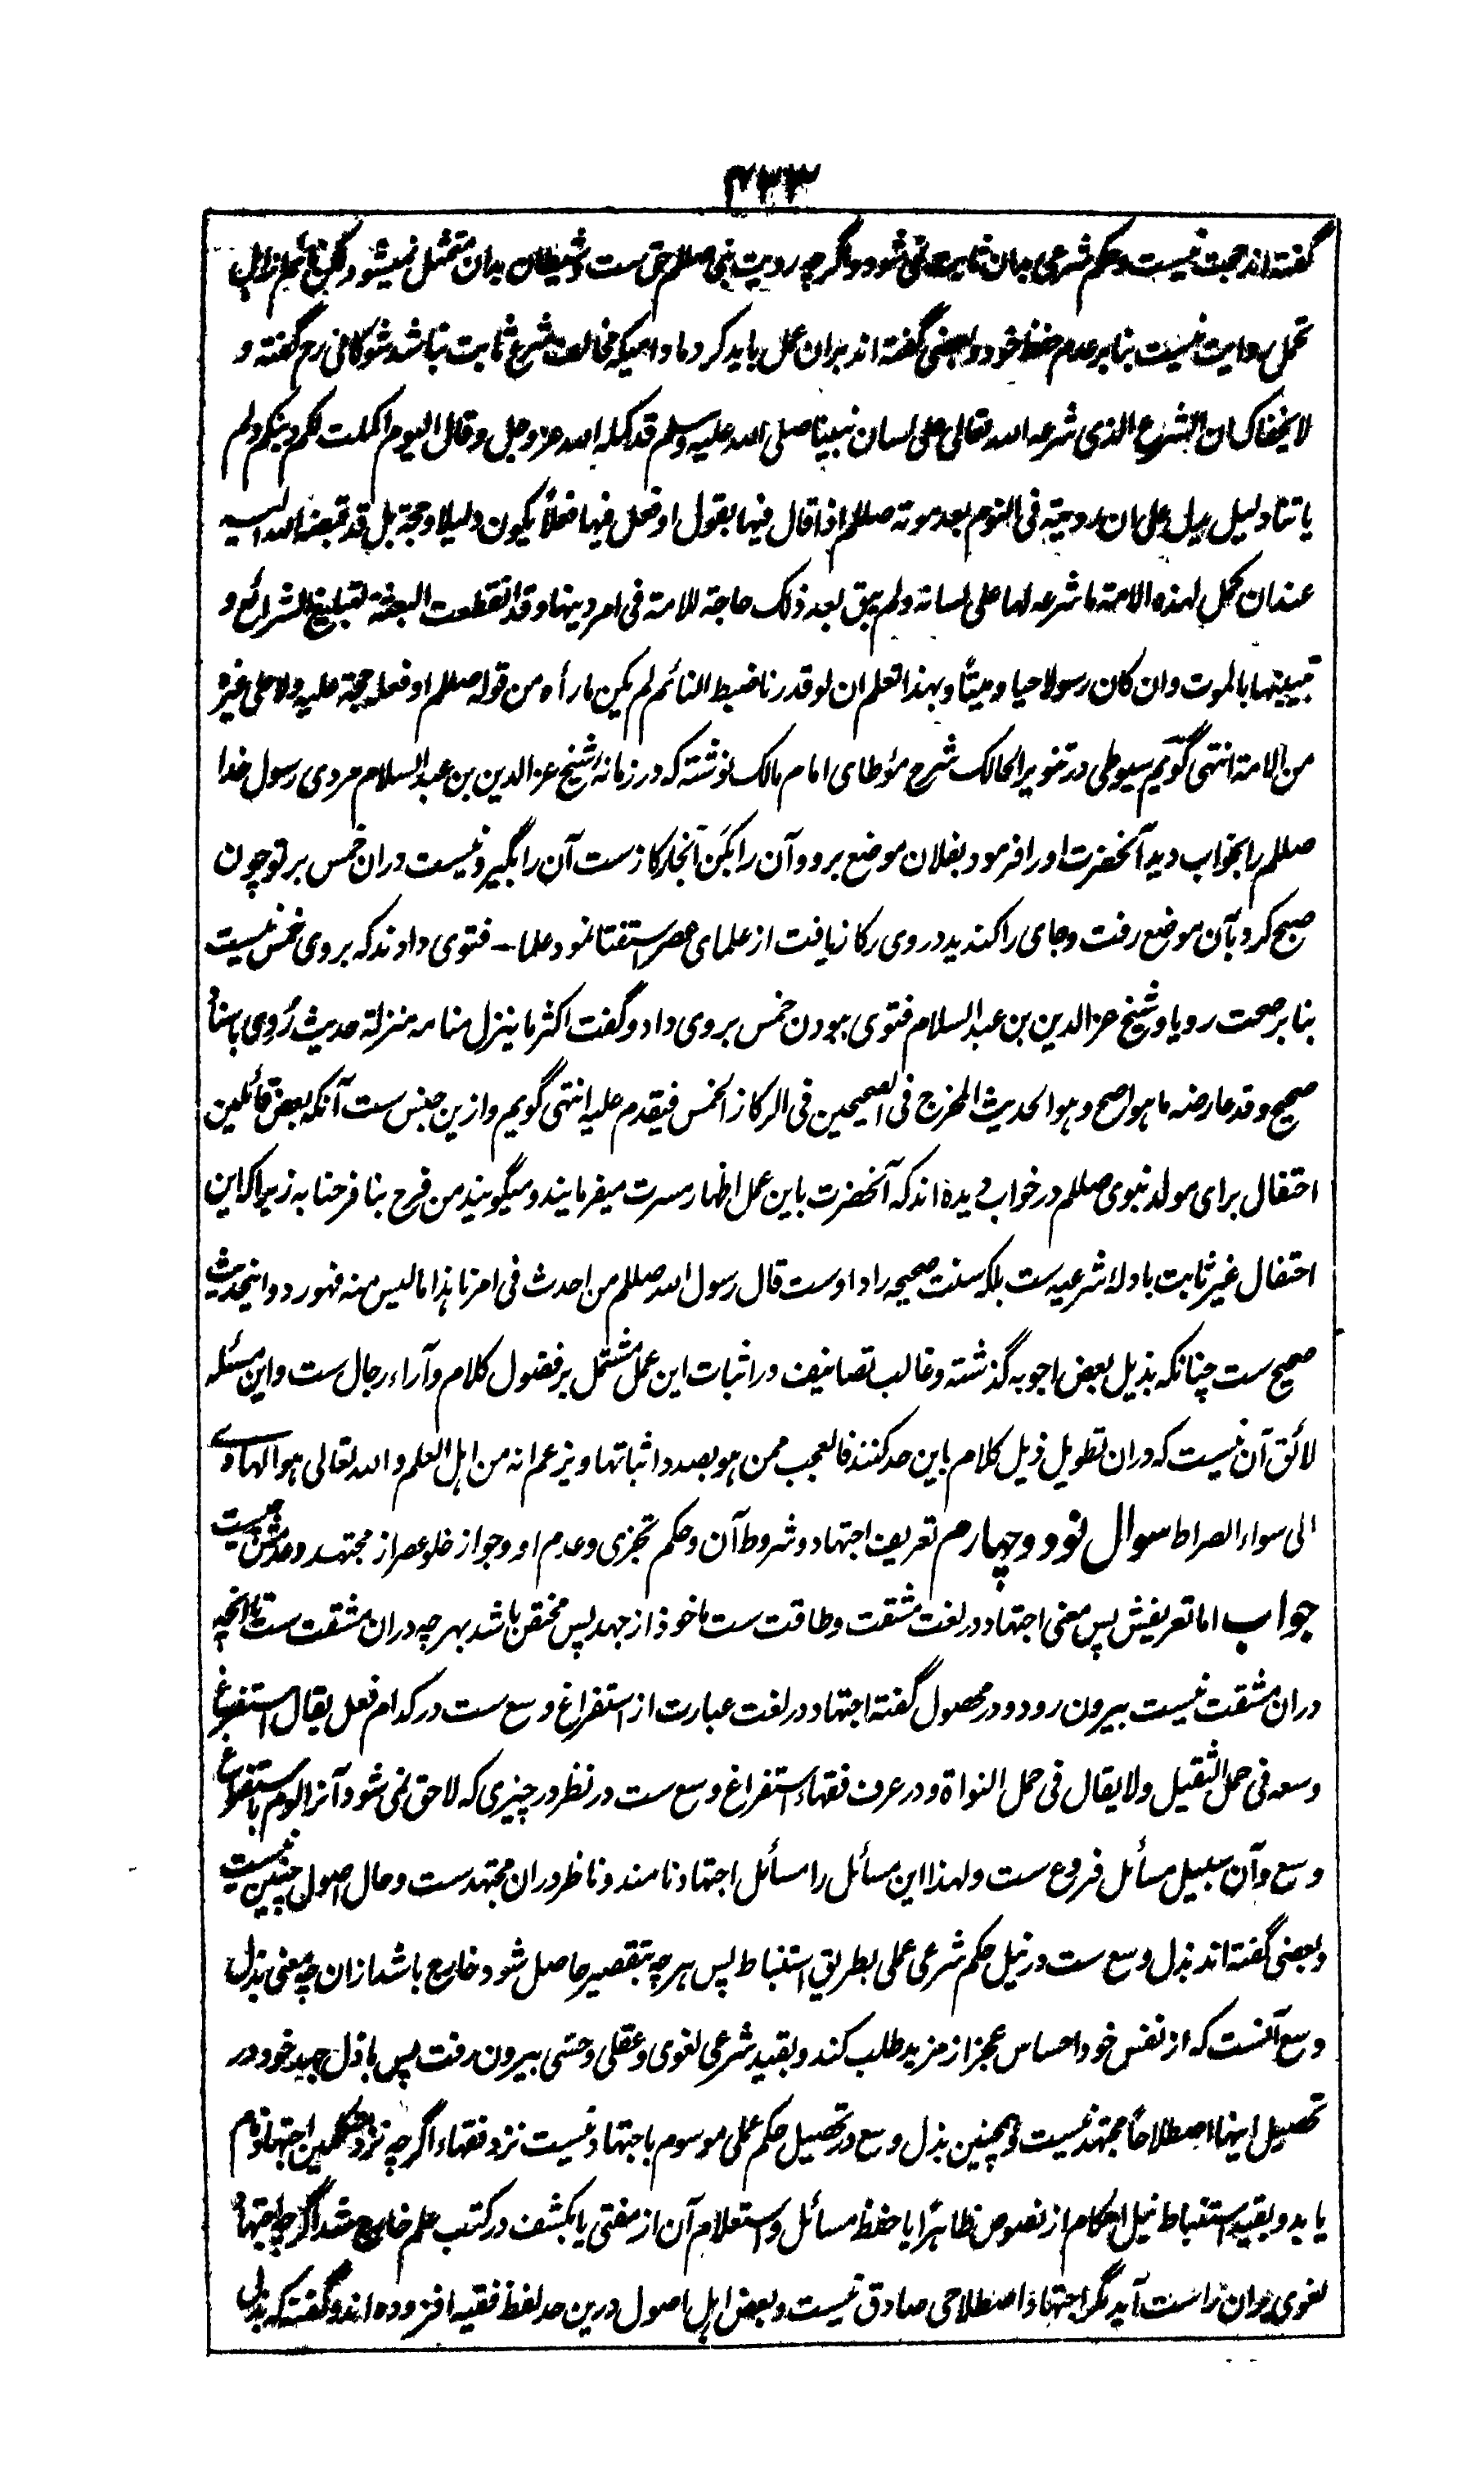 ۴۳۳
گفته‌اند حجت نیست و حکم شرعی بدان ثابت نمی‌شود و اگرچه رویت نبی صللم حق ست و شیطان بدان متمثل نمیشود لکن نائم از اهل
تحمل روایت نیست بنا بر عدم حفظ خود و بعضی گفته‌اند بران عمل باید کرد مادامیکه مخالف شرع ثابت نباشد شوکانی رح گفته و
لا یخفاک ان الشرع الذی شرعه الله تعالی علی لسان نبینا صلی الله علیه وسلم قد کمله الله عز وجل و قال الیوم اکملت لکم دینکم ولم
یاتنا دلیل یدل علی ان رویته فی النوم بعد موته صللم اذا قال فیها بقول او فعل فیها فعلاً یکون دلیلا و حجة بل قد قبضه الله الیه
عند ان کمل لهذه الامة ما شرعه لها علی لسانه ولم یبق بعد ذلک حاجة للامة فی امر دینها و قد انقطعت البعثة لتبلیغ الشرائع و
تبیینها بالموت و ان کان رسولا حیا و میتاً و بهذا تعلم ان لو قدرنا ضبط النائم لم یکن ما رأه من قوله صللم او فعله حجة علیه ولا علی غیره
من الامة انتهی گویم سیوطی در تنویر الحالک شرح مؤطای امام مالک نوشته که در زمانه شیخ عز الدین بن عبد السلام مردی رسول خدا
صللم را بخواب دید آنحضرت او را فرمود بفلان موضع برو و آن را بکن آنجا رکاز ست آن را بگیر و نیست دران خمس بر تو چون
صبح کرد بآن موضع رفت و جای را کندید در وی رکاز یافت از علمای عصر استفتا نمود علما – فتوی دادند که بر وی خمس نیست
بنا بر صحت رویا و شیخ عز الدین بن عبد السلام فتوی ببودن خمس بر وی داد و گفت اکثر ما ینزل منامه منزلة حدیث رُوی باسناد
صحیح و قد عارضه ما هو اصح و هو الحدیث المخرج فی الصحیحین فی الرکاز الخمس فیقدم علیه انتهی گویم و ازین جنس ست آنکه بعض قائلین
احتفال برای مولد نبوی صللم در خواب دیده‌اند که آنحضرت باین عمل اظهار مسرت میفرمایند و میگویند من فرح بنا فرحنا به زیراکه این
احتفال غیر ثابت بادله شرعیه ست بلکه سنت صحیحه راد اوست قال رسول الله صللم من احدث فی امرنا هذا ما لیس منه فهو رد و اینحدیث
صحیح ست چنانکه بذیل بعض اجوبه گذشته و غالب تصانیف در اثبات این عمل مشتمل بر فضول کلام و آراء رجال ست و این مسئله
لائق آن نیست که دران تطویل ذیل کلام باین حد کنند فالعجب ممن هو بصدد اثباتها و یزعم انه من اهل العلم و الله تعالی هو الهادی
الی سواء الصراط سوال نود و چهارم تعریف اجتهاد و شروط آن و حکم تجزی و عدم او و جواز خلو عصر از مجتهد و عدمش چیست
جواب اما تعریفش پس معنی اجتهاد در لغت مشقت و طاقت ست ماخوذ از جهد پس مختص باشد بهر چه دران مشقت ست تا آنچه
دران مشقت نیست بیرون رود و در محصول گفته اجتهاد در لغت عبارت از استفراغ وسع ست در کدام فعل یقال استفرغ
وسعه فی حمل الثقیل ولا یقال فی حمل النواة و در عرف فقهاء استفراغ وسع ست در نظر در چیزی که لاحق نمی شود آنرا لوم با استفراغ
وسع و آن سبیل مسائل فروع ست و لهذا این مسائل را مسائل اجتهاد نامند و ناظر دران مجتهد ست و حال اصول چنین نیست
و بعضی گفته‌اند بذل وسع ست در نیل حکم شرعی عملی بطریق استنباط پس هر چه بتقصیر حاصل شود خارج باشد ازان چه معنی بذل
وسع آنست که از نفس خود احساس عجز از مزید طلب کند و بقید شرعی لغوی و عقلی و حسی بیرون رفت پس باذل جهد خود در
تحصیل اینها اصطلاحاً مجتهد نیست و همچنین بذل وسع در تحصیل حکم عملی موسوم باجتهاد نیست نزد فقهاء اگرچه نزد متکلمین اجتهاد نام
یابد و بقید استنباط نیل احکام از نصوص ظاهراً یا حفظ مسائل و استعلام آن از مفتی یا بکشف در کتب علم خارج شد اگرچه اجتهاد
لغوی بران راست آید مگر اجتهاد اصطلاحی صادق نیست و بعض اهل اصول درین حد لفظ فقیه افزوده‌اند و گفته که بذل